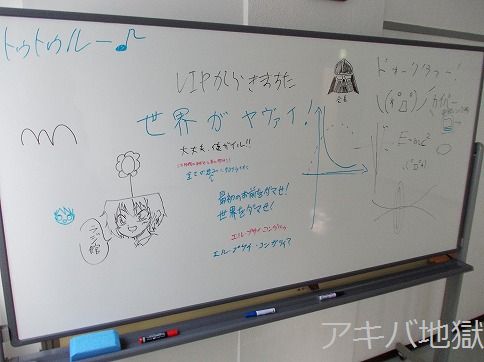 トゥトゥルー♪
VIPからきますた
世界がヤヴァイ!
大丈夫、僕がイル!!
最初のお前をダマせ!
世界をダマせ!
エル・プサイ・コングルゥ
エル・プサイ・コンガリィ?
会長
ラジ館
ドゥークター!
E=mc²
アキバ地獄